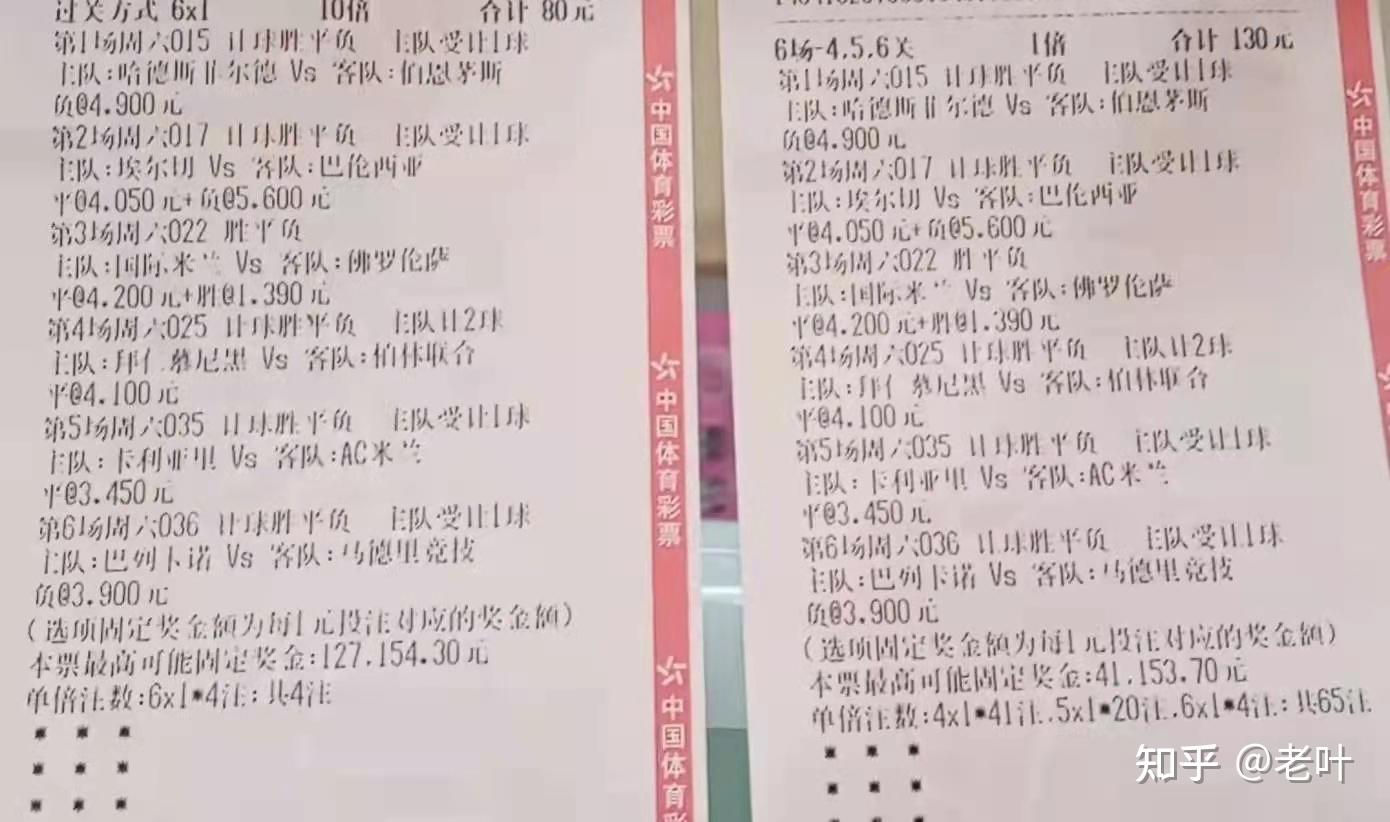 过关方式 6x1 10倍 合计 80元
第1场周六015 让球胜平负 主队受让1球
主队:哈德斯菲尔德 Vs 客队:伯恩茅斯
负@4.900元
第2场周六017 让球胜平负 主队受让1球
主队:埃尔切 Vs 客队:巴伦西亚
平@4.050元+负@5.600元
第3场周六022 胜平负
主队:国际米兰 Vs 客队:佛罗伦萨
平@4.200元+胜@1.390元
第4场周六025 让球胜平负 主队让2球
主队:拜仁慕尼黑 Vs 客队:柏林联合
平@4.100元
第5场周六035 让球胜平负 主队受让1球
主队:卡利亚里 Vs 客队:AC米兰
平@3.450元
第6场周六036 让球胜平负 主队受让1球
主队:巴列卡诺 Vs 客队:马德里竞技
负@3.900元
(选项固定奖金额为每1元投注对应的奖金额)
本票最高可能固定奖金:127,154.30元
单倍注数:6x1*4注;共4注
中国体育彩票
中国体育彩票
中国体育彩
6场-4,5,6关 1倍 合计 130元
第1场周六015 让球胜平负 主队受让1球
主队:哈德斯菲尔德 Vs 客队:伯恩茅斯
负@4.900元
第2场周六017 让球胜平负 主队受让1球
主队:埃尔切 Vs 客队:巴伦西亚
平@4.050元+负@5.600元
第3场周六022 胜平负
主队:国际米兰 Vs 客队:佛罗伦萨
平@4.200元+胜@1.390元
第4场周六025 让球胜平负 主队让2球
主队:拜仁慕尼黑 Vs 客队:柏林联合
平@4.100元
第5场周六035 让球胜平负 主队受让1球
主队:卡利亚里 Vs 客队:AC米兰
平@3.450元
第6场周六036 让球胜平负 主队受让1球
主队:巴列卡诺 Vs 客队:马德里竞技
负@3.900元
(选项固定奖金额为每1元投注对应的奖金额)
本票最高可能固定奖金:41,153.70元
单倍注数:4x1*41注,5x1*20注,6x1*4注;共65注
中国体育彩票
知乎 @老叶